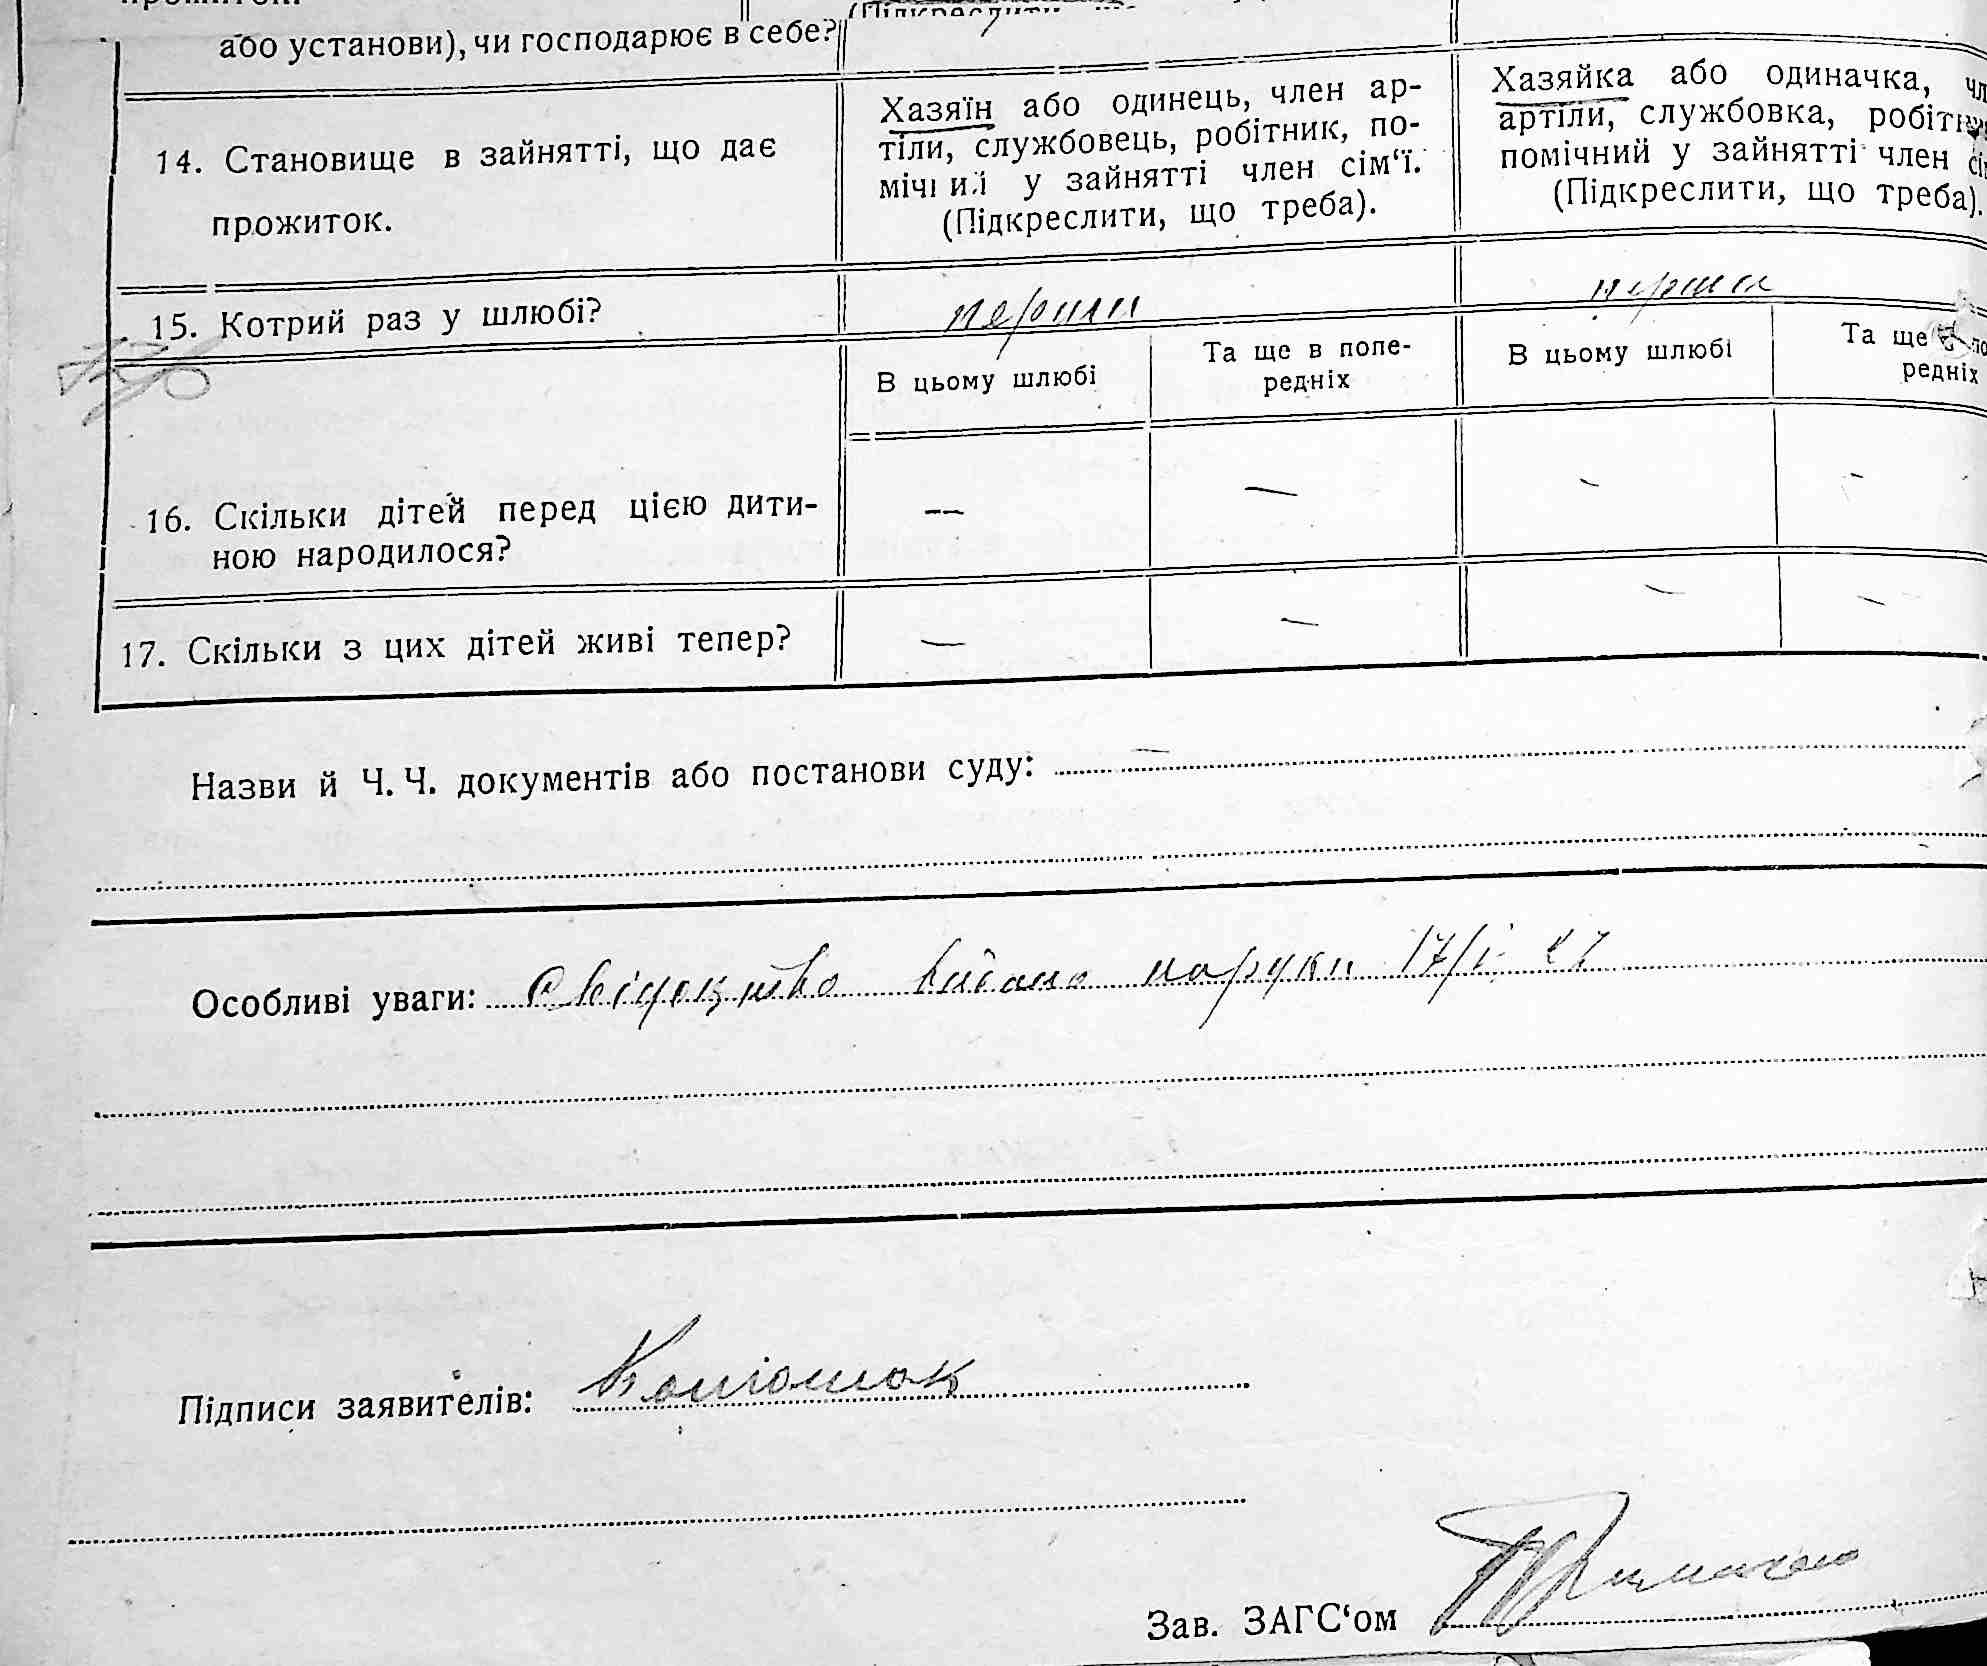 або установи), чи господарює в себе?
14. Становище в зайнятті, що дає
прожиток.
Хазяїн або одинець, член ар-
тіли, службовець, робітник, по-
мічний у зайнятті член сім‘ї.
(Підкреслити, що треба).
Хазяйка або одиначка,
артіли, службовка,
помічний у зайнятті член
(Підкреслити, що треба).
15. Котрий раз у шлюбі?
перший
перший
В цьому шлюбі
Та ще в попе-
редніх
В цьому шлюбі
Та ще
редніх
16. Скільки дітей перед цією дити-
ною народилося?
— — — —
17. Скільки з цих дітей живі тепер?
— — — —
Назви й Ч. Ч. документів або постанови суду: —
Особливі уваги: Свідоцтво видано наруки 17/I 27
Підписи заявителів:
Зав. ЗАГС‘ом